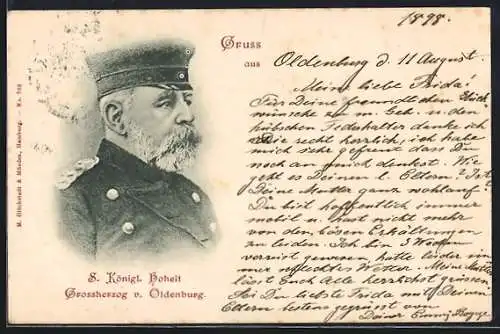 1898.
Gruss
aus
Oldenburg d. 11 August.
Meine liebe Frida!
Für Deine freundlichen Glück
wünsche z. m. Geb. u. den
hübschen Federhalter danke ich
Die recht herzlich, ich habe
mich sehr gefreut dass Du
noch an mich denkst. Wie
geht es Deinen l. Eltern? Ist
Deine Mutter ganz wohlauf?
Du bist hoffentlich immer
mobil u. hast nicht mehr
von den bösen Erkältungen
zu leiden. Ich bin 3 Wochen
verreist gewesen, hatte leider im
mer schlechtes Wetter. Meine Mutter
lässt Euch Alle herzlichst grüssen
Sei Du liebste Frida mit Deinen
Eltern bestens gegrüsst von
Deiner Emmy
S. Königl. Hoheit
Grossherzog v. Oldenburg.
M. Glückstadt & Münden, Hamburg. – No.